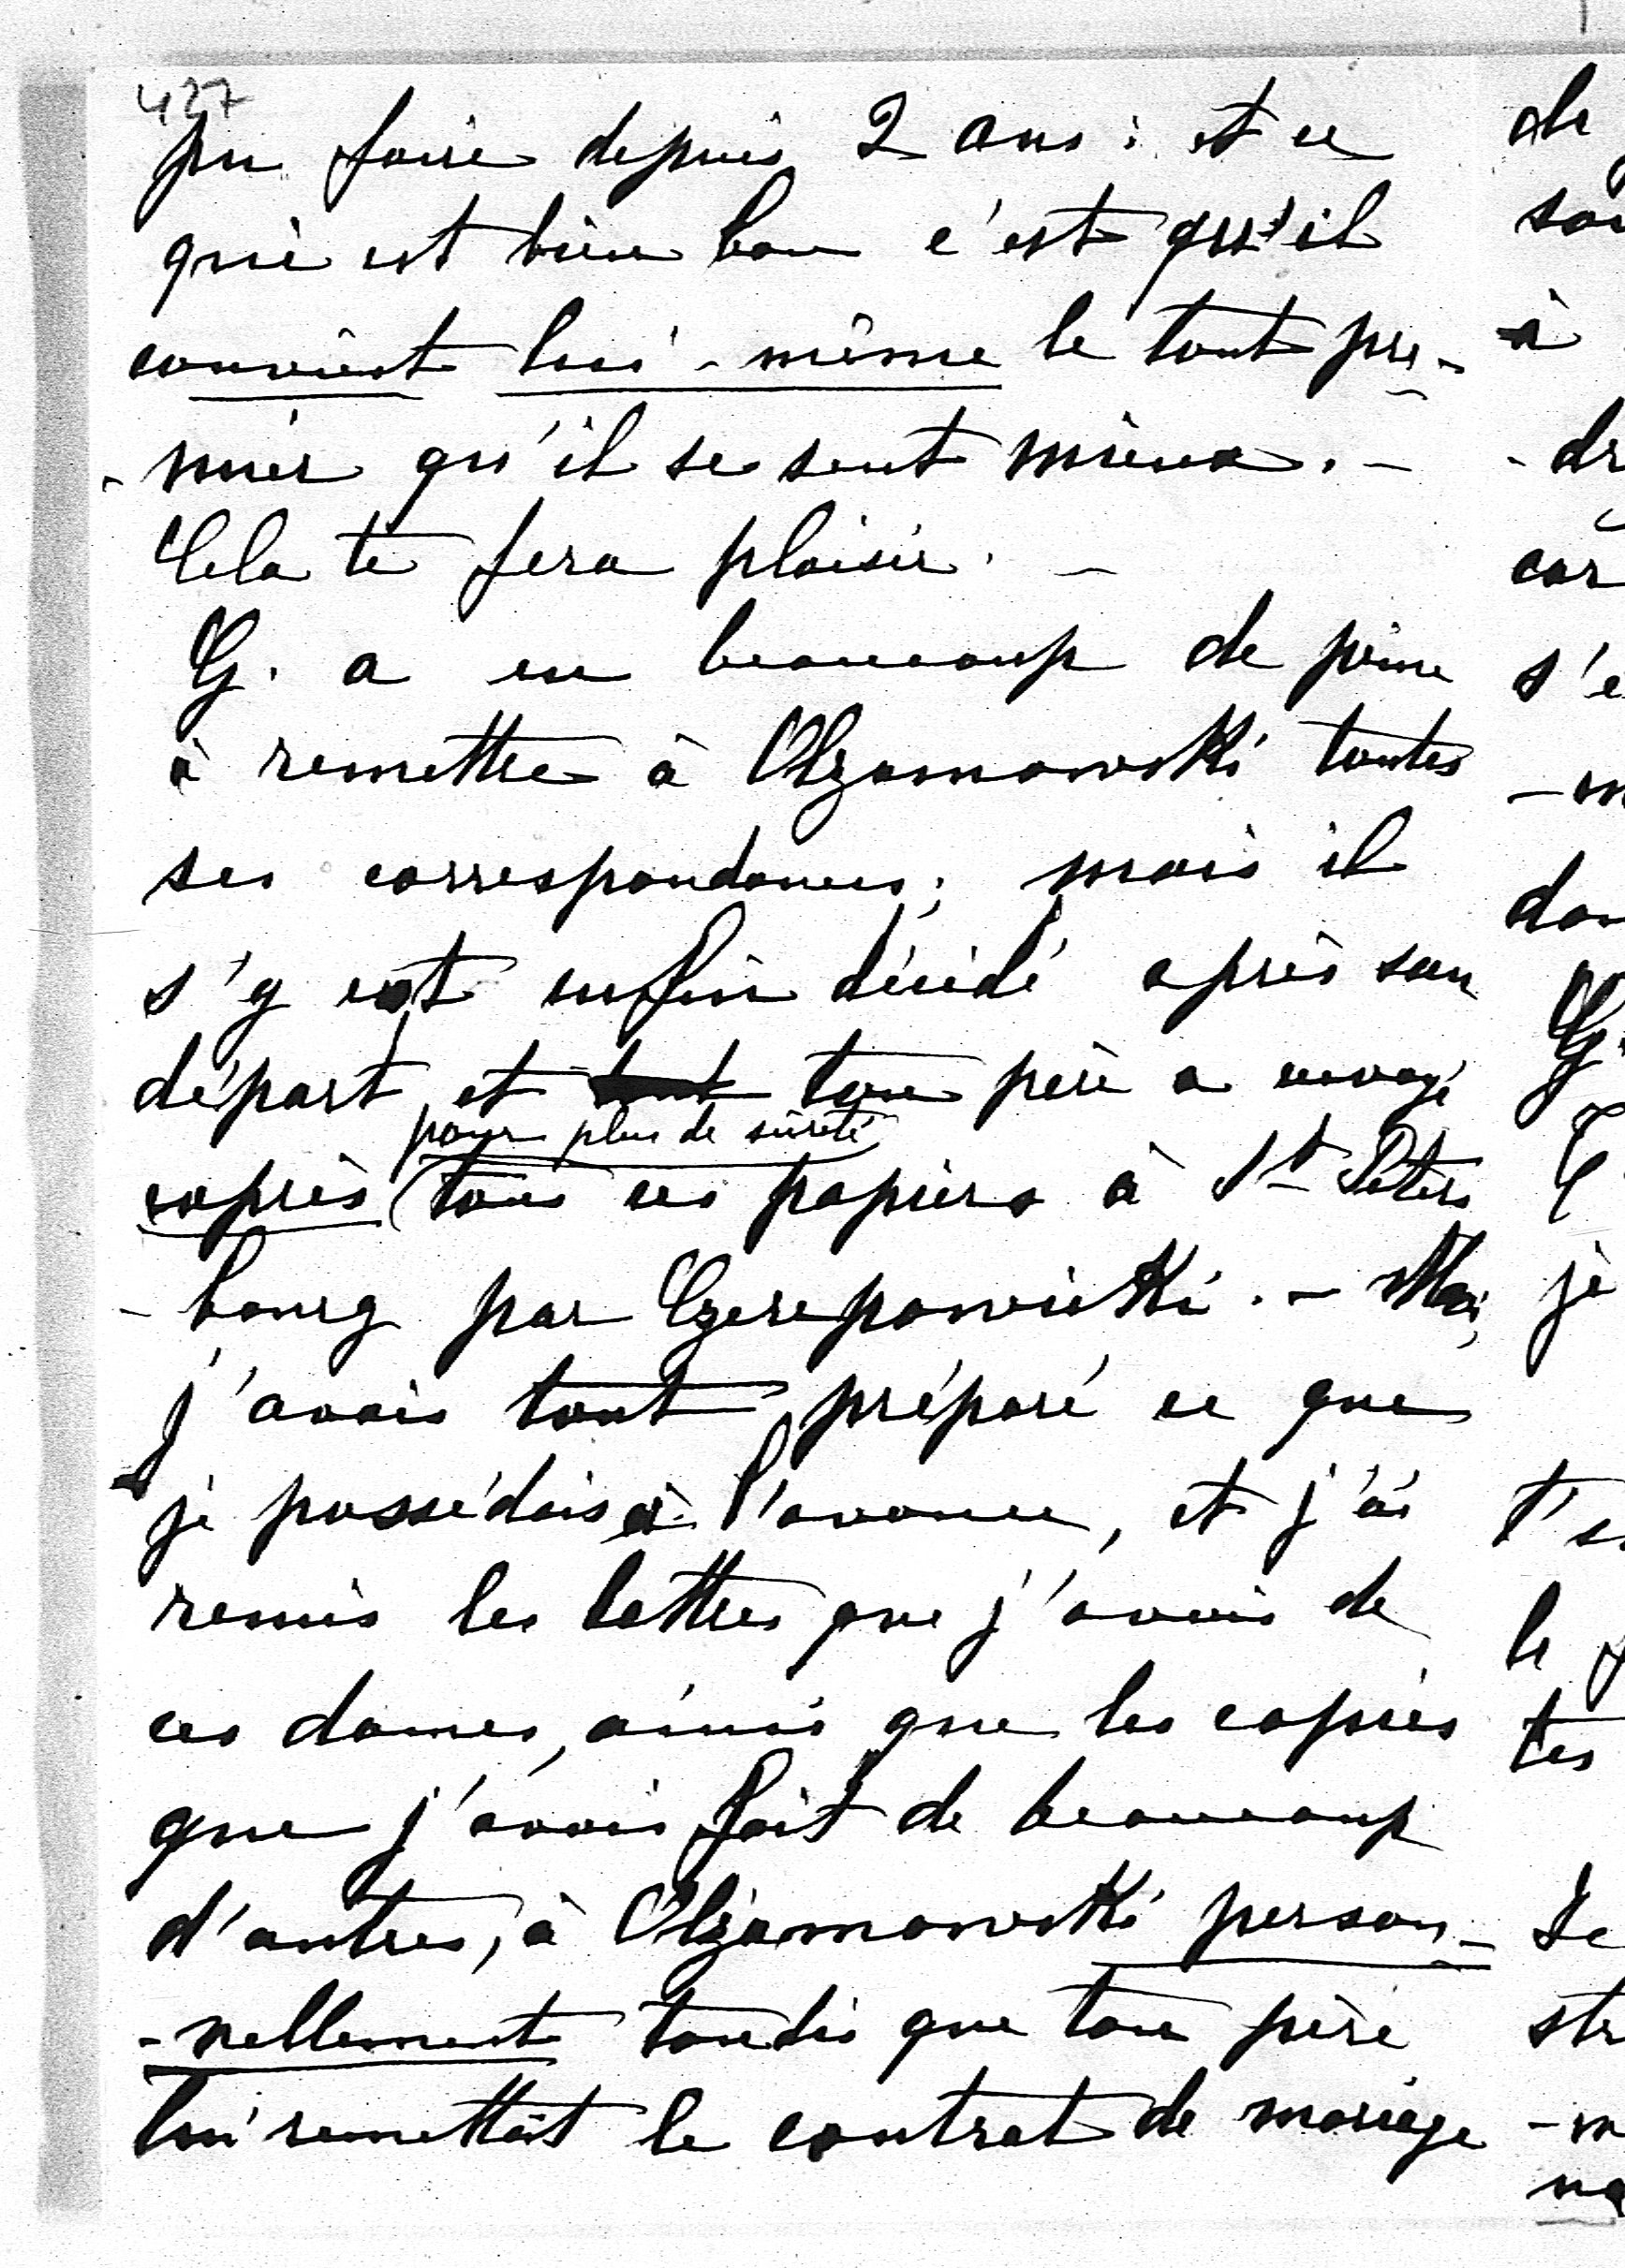 427
pu faire depuis 2 ans : et ce
qui est bien bon c'est qu'il
convient lui-même le tout pre-
-mier qu'il se sent mieux. -
Cela te fera plaisir. -
G. a eu beaucoup de peine
à remettre à Olzamowski toutes
ses correspondances; mais il
s'y est enfin décidé après son
départ et ton père a envoyé
pour plus de sûreté
exprès tous ces papiers à St Peters
-bourg par Czerepowicki. - Moi,
j'avais tout préparé ce que
je possédais à l'avance, et j'ai
remis les lettres que j'avais de
ces dames, ainsi que les copies
que j'avais fait de beaucoup
d'autres, à Olzamowski person-
-nellement tandis que ton père
lui remettait le contrat de mariage
de
à
je
le
tes